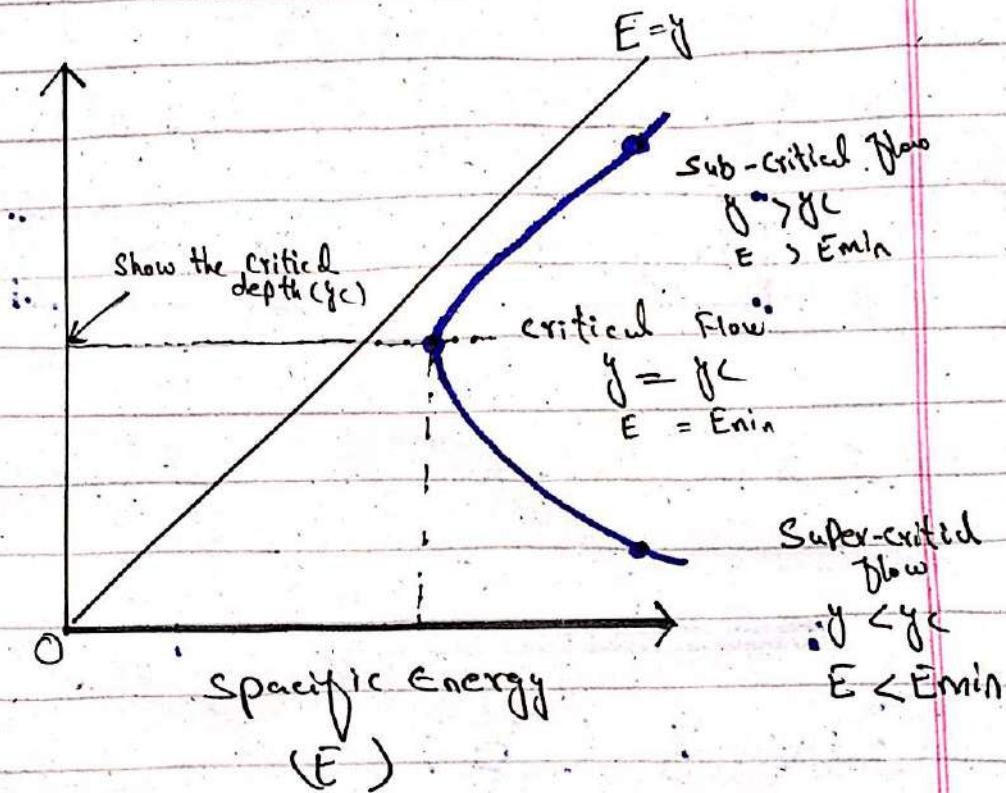 E = y
sub-critical flow
y > yc
E > Emin
Show the critical
depth (yc)
critical Flow
y = yc
E = Emin
Super-critical
flow
y < yc
E < Emin
O
Spacific Energy
(E)